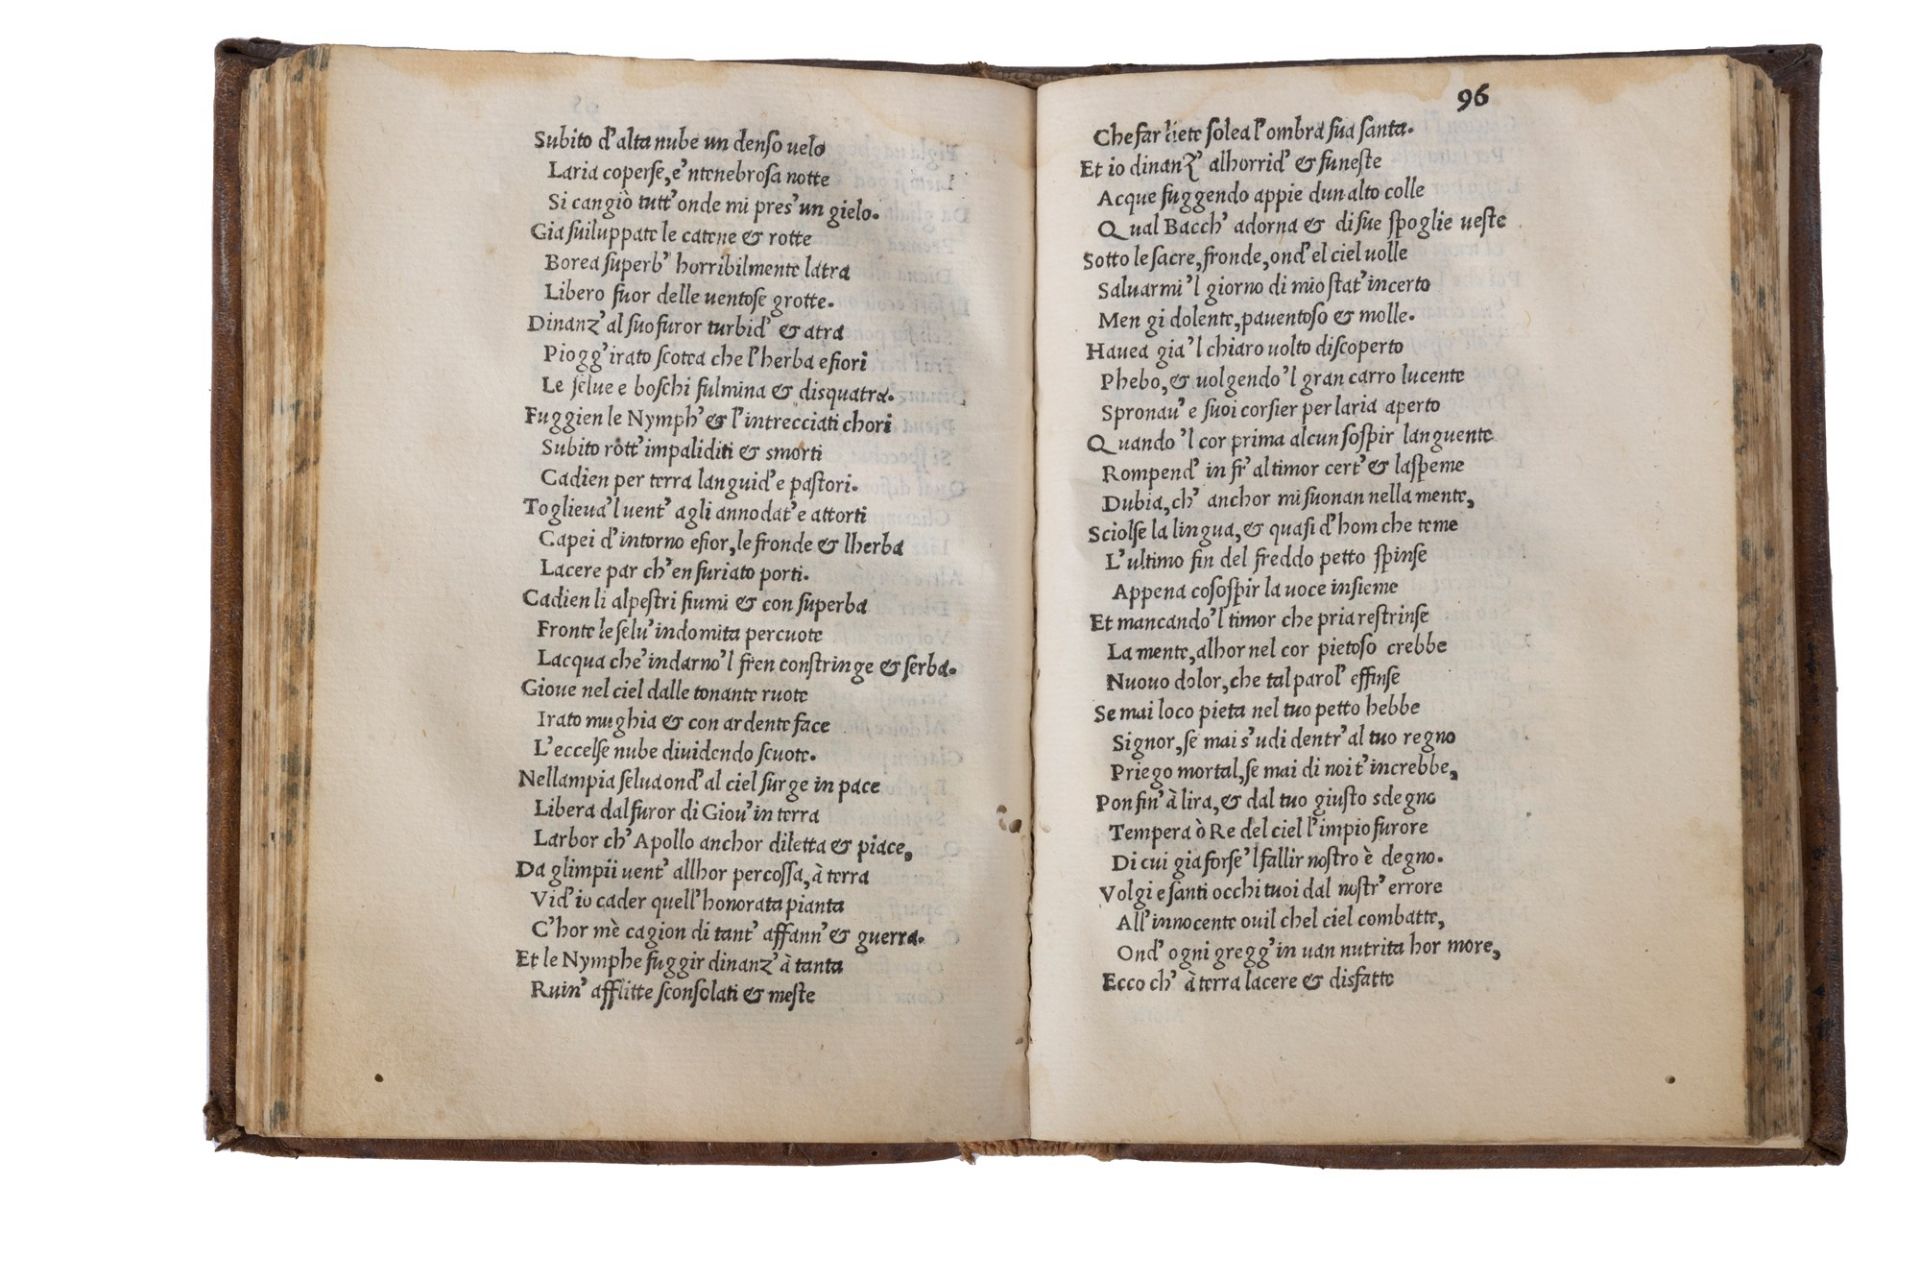 Subito d'alta nube un denso uelo
Laria coperse, e'ntenebrosa notte
Si cangiò tutt'onde mi pres'un gielo.
Gia suiluppate le catene & rotte
Borea superb' horribilmente latra
Libero fuor delle uentose grotte.
Dinanz'al suo furor turbid' & atra
Piogg'irato scotea che l'herba e fiori
Le selue e boschi fulmina & disquatra.
Fuggien le Nymph' & l'intrecciati chori
Subito rott'impaliditi & smorti
Cadien per terra languid' e pastori.
Toglieua'l uent' agli annodat'e attorti
Capei d'intorno e fior, le fronde & lherba
Lacere par ch'en furiato porti.
Cadien li alpestri fiumi & con superba
Fronte le selu'indomita percuote
Lacqua che'indarno'l fren constringe & serba.
Gioue nel ciel dalle tonante ruote
Irato mughia & con ardente face
L'eccelse nube diuidendo scuote.
Nellampia selua ond'al ciel surge in pace
Libera dal furor di Giou'in terra
Larbor ch'Apollo anchor diletta & piace,
Da glimpii uent' allhor percossa, à terra
Vid'io cader quell'honorata pianta
C'hor mè cagion di tant' affann' & guerra.
Et le Nymphe fuggir dinanz'à tanta
Ruin' afflitte sconsolati & meste
96
Che far liete solea l'ombra sua santa.
Et io dinanz' alhorrid' & funeste
Acque fuggendo appie dun alto colle
Qual Bacch' adorna & di sue spoglie ueste
Sotto le sacre, fronde, ond'el ciel uolle
Saluarmi'l giorno di mio stat'incerto
Men gi dolente, pauentoso & molle.
Hauea gia'l chiaro uolto discoperto
Phebo, & uolgendo'l gran carro lucente
Spronau'e suoi corsier per laria aperto
Quando'l cor prima alcun sospir languente
Rompend' in fr'al timor cert' & laspeme
Dubia, ch' anchor mi suonan nella mente,
Sciolse la lingua, & quasi d'hom che teme
L'ultimo fin del freddo petto spinse
Appena co sospir la uoce insieme
Et mancando'l timor che pria restrinse
La mente, alhor nel cor pietoso crebbe
Nuouo dolor, che tal parol' effinse
Se mai loco pieta nel tuo petto hebbe
Signor, se mai s'udi dentr'al tuo regno
Priego mortal, se mai di noi t'increbbe,
Pon fin'à lira, & dal tuo giusto sdegno
Tempera ò Re del ciel l'impio furore
Di cui gia forse'l fallir nostro è degno.
Volgi e santi occhi tuoi dal nostr'errore
All'innocente ouil chel ciel combatte,
Ond' ogni gregg'in uan nutrita hor more,
Ecco ch' à terra lacere & disfatte